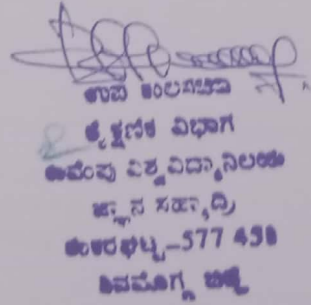 ಉಪ ಕುಲಸಚಿವ
ಶೈಕ್ಷಣಿಕ ವಿಭಾಗ
ಕುವೆಂಪು ವಿಶ್ವವಿದ್ಯಾನಿಲಯ
ಜ್ಞಾನ ಸಹ್ಯಾದ್ರಿ
ಶಂಕರಘಟ್ಟ-577 451
ಶಿವಮೊಗ್ಗ ಜಿಲ್ಲೆ